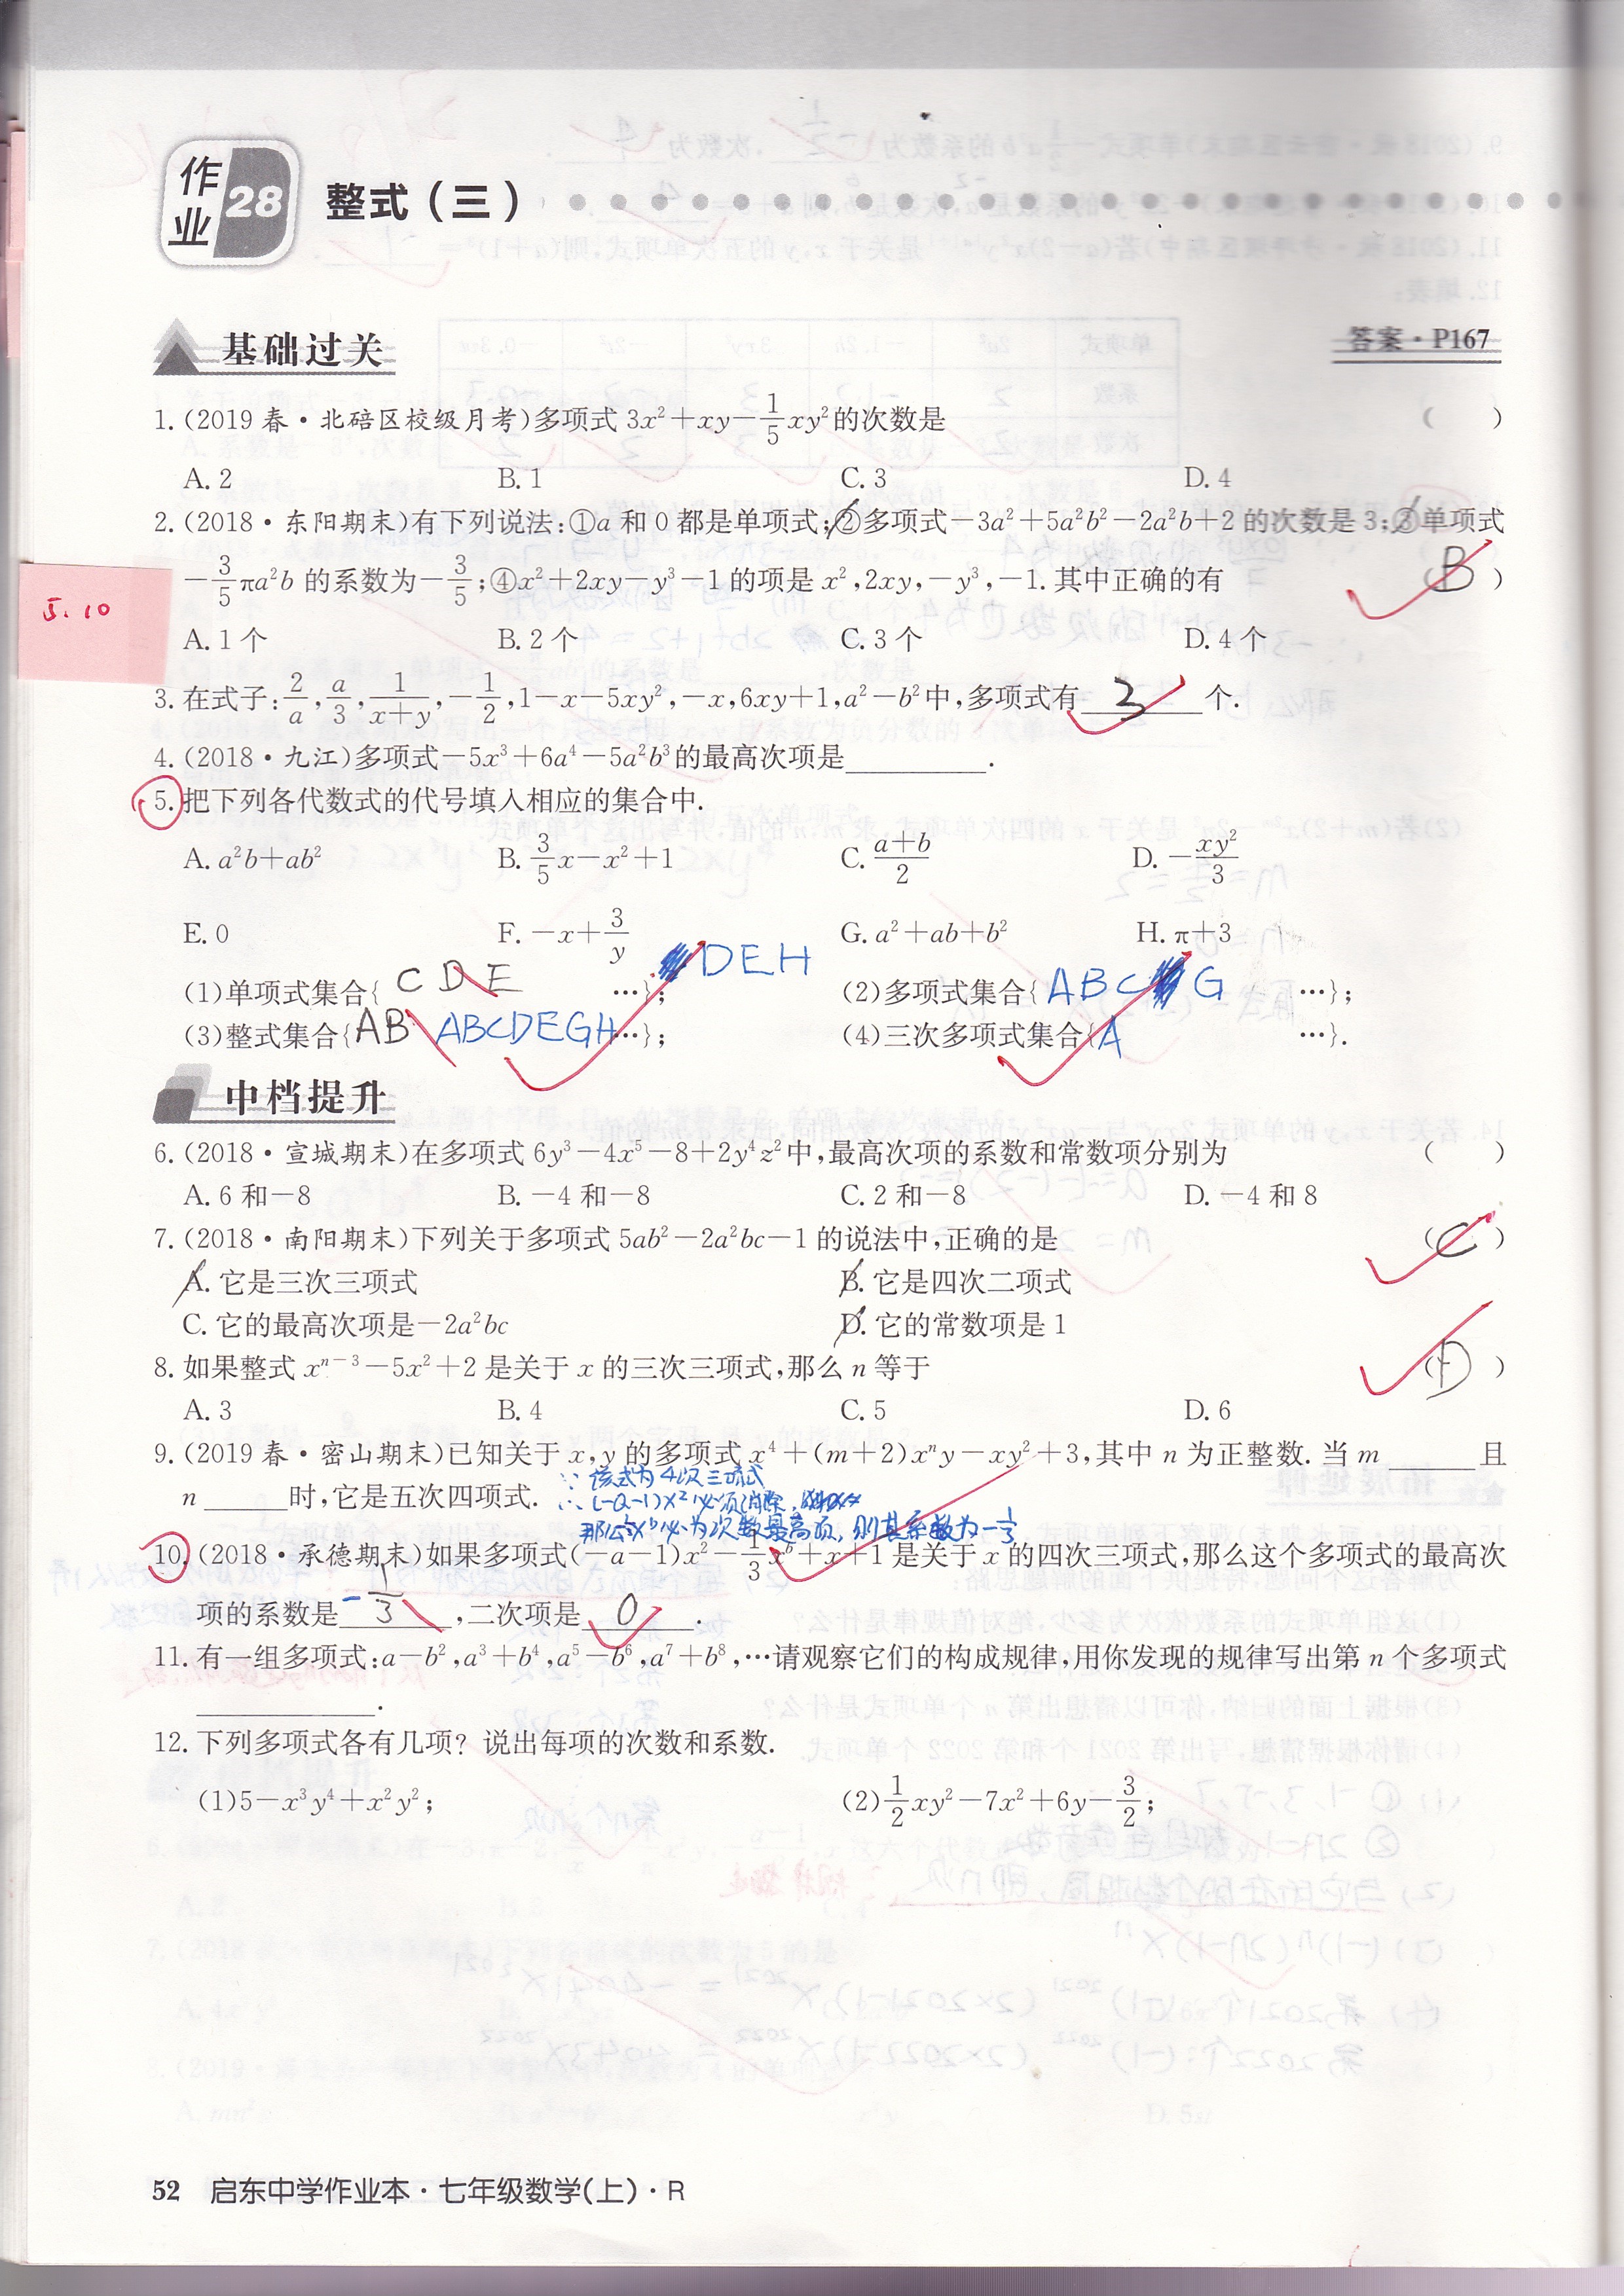 作业 28 整式(三)
基础过关
答案·P167
1.(2019春·北碚区校级月考)多项式 3x²+xy-1/5xy²的次数是 ( )
A. 2 B. 1 C. 3 D. 4
2.(2018·东阳期末)有下列说法:①a 和 0 都是单项式;②多项式-3a²+5a²b²-2a²b+2 的次数是 3;③单项式
-3/5πa²b 的系数为-3/5;④x²+2xy-y³-1 的项是 x²,2xy,-y³,-1.其中正确的有 (B)
A. 1个 B. 2个 C. 3个 D. 4个
5.10
3.在式子:2/a,a/3,1/(x+y),-1/2,1-x-5xy²,-x,6xy+1,a²-b²中,多项式有 3 个.
4.(2018·九江)多项式-5x³+6a⁴-5a²b³的最高次项是______.
5.把下列各代数式的代号填入相应的集合中.
A. a²b+ab² B. 3/5x-x²+1 C. (a+b)/2 D. -xy²/3
E. 0 F. -x+3/y G. a²+ab+b² H. π+3
(1)单项式集合{ C D E …}; DEH (2)多项式集合{ ABC G …};
(3)整式集合{ AB ABCDEGH …}; (4)三次多项式集合{ A …}.
中档提升
6.(2018·宣城期末)在多项式 6y³-4x⁵-8+2y⁴z²中,最高次项的系数和常数项分别为 ( )
A. 6和-8 B. -4和-8 C. 2和-8 D. -4和8
7.(2018·南阳期末)下列关于多项式 5ab²-2a²bc-1 的说法中,正确的是 (C)
A. 它是三次三项式 B. 它是四次二项式
C. 它的最高次项是-2a²bc D. 它的常数项是 1
8.如果整式 xⁿ⁻³-5x²+2 是关于 x 的三次三项式,那么 n 等于 (D)
A. 3 B. 4 C. 5 D. 6
9.(2019春·密山期末)已知关于 x,y 的多项式 x⁴+(m+2)xⁿy-xy²+3,其中 n 为正整数.当 m______且
n______时,它是五次四项式.
∵该式为4次三项式
∴(-a-1)x²必须消除,
那么-1/3xᵇ必为次数最高项,则其系数为-1/3
10.(2018·承德期末)如果多项式(-a-1)x²-1/3xᵇ+x+1 是关于 x 的四次三项式,那么这个多项式的最高次
项的系数是 -1/3 ,二次项是 0 .
11.有一组多项式:a-b²,a³+b⁴,a⁵-b⁶,a⁷+b⁸,…请观察它们的构成规律,用你发现的规律写出第 n 个多项式
______.
12.下列多项式各有几项?说出每项的次数和系数.
(1)5-x³y⁴+x²y²; (2)1/2xy²-7x²+6y-3/2;
52 启东中学作业本·七年级数学(上)·R